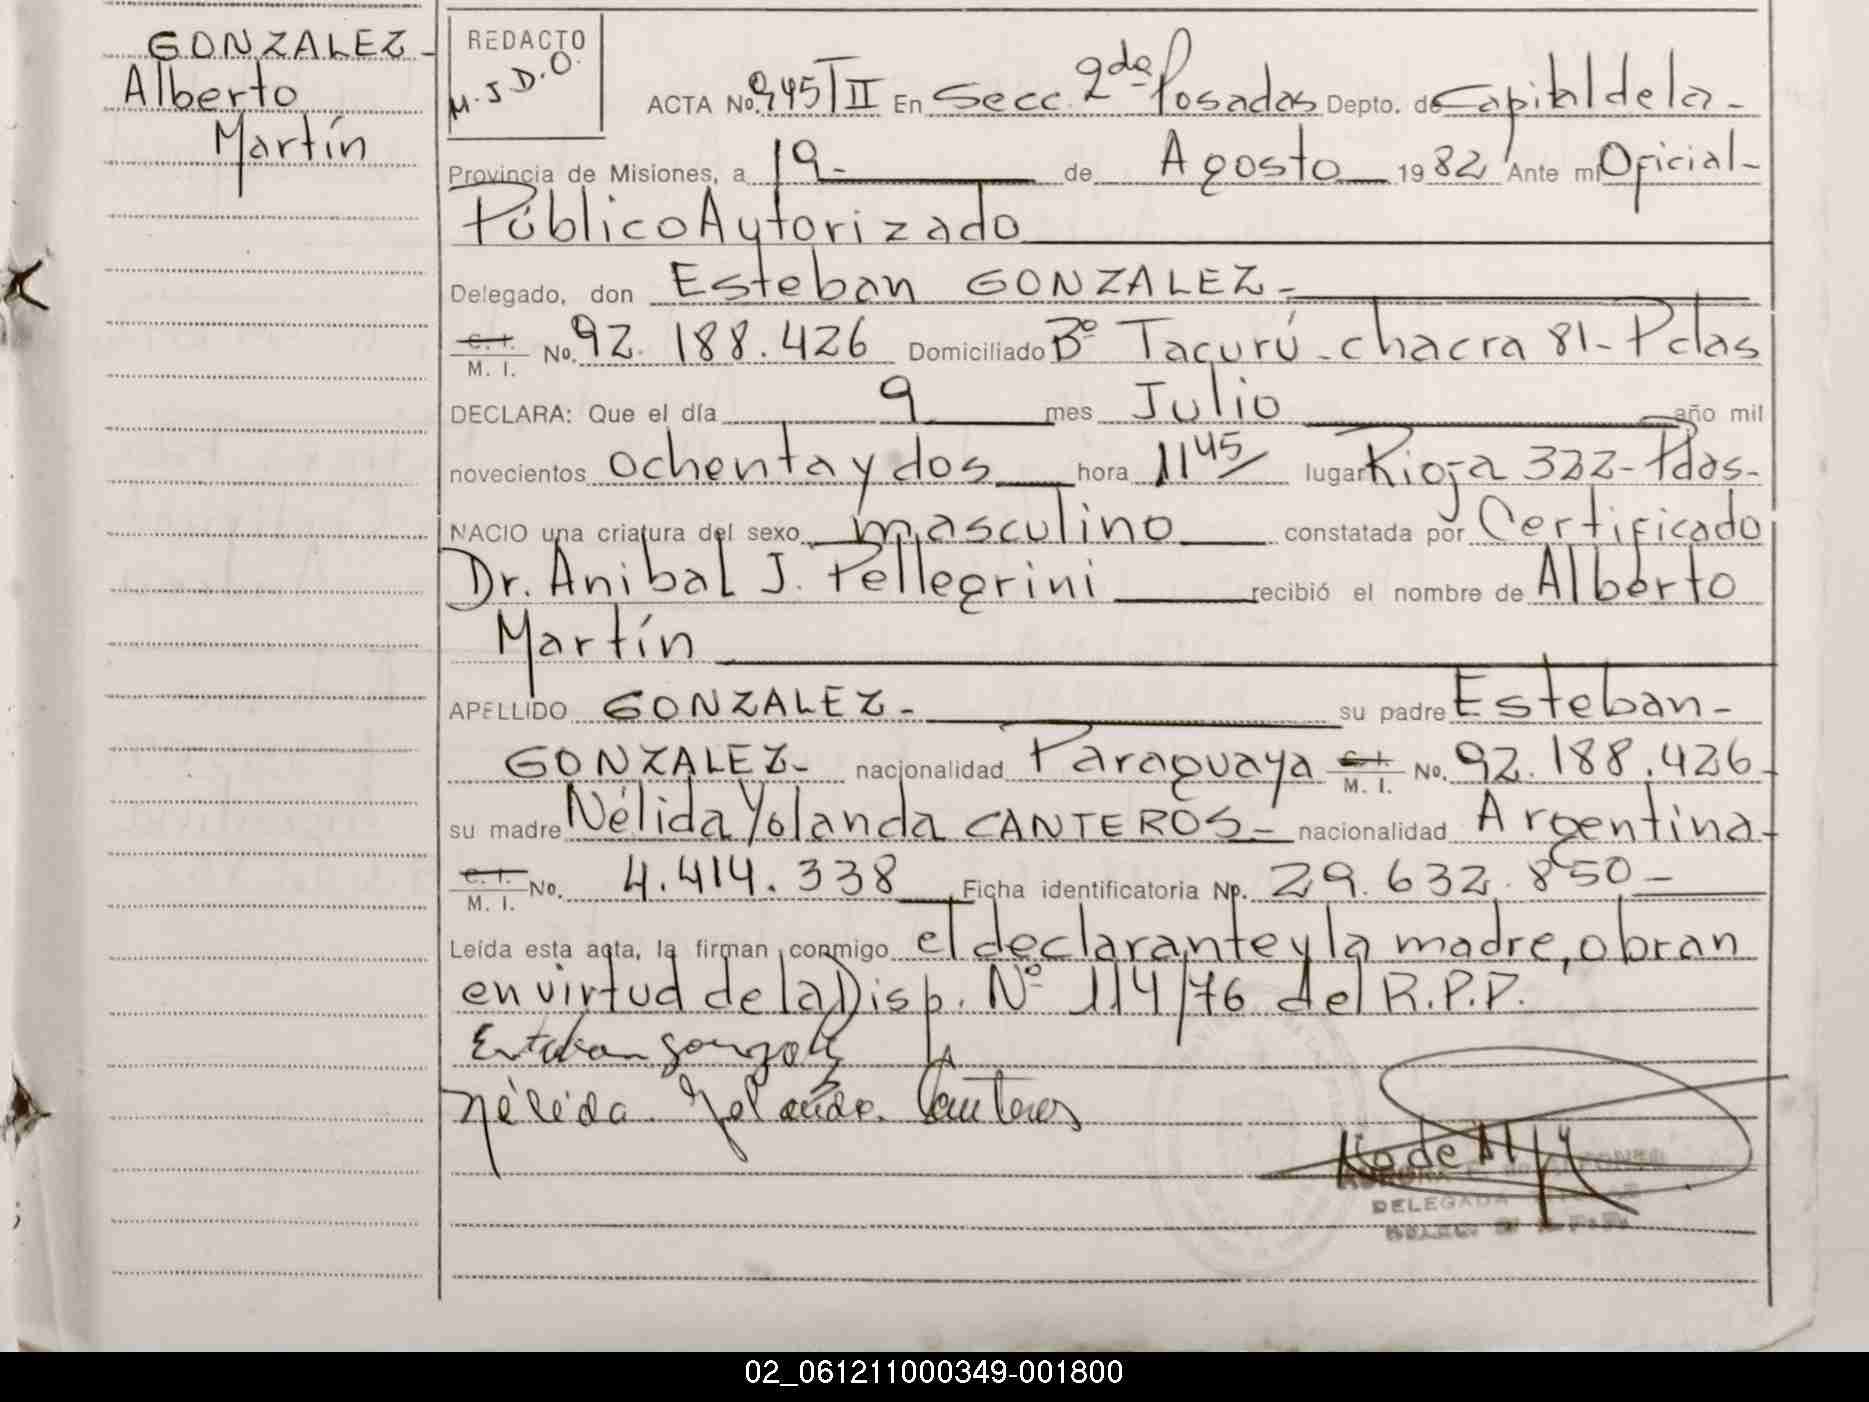 GONZALEZ-
Alberto
Martín
REDACTO
M. J D. O.
ACTA No. 945 T II En Secc. 2da Posadas Depto. de Capital de la-
Provincia de Misiones, a 19- de Agosto 1982 Ante mi Oficial-
Público Autorizado
Delegado, don Esteban GONZALEZ-
C. I. M. I. No. 92.188.426 Domiciliado Bº Tacurú-chacra 81-Pdas
DECLARA: Que el día 9 mes Julio año mil
novecientos ochenta y dos hora 11 45 lugar Rioja 322-Pdas-
NACIO una criatura del sexo masculino constatada por Certificado
Dr. Anibal J. Pellegrini recibió el nombre de Alberto
Martín
APELLIDO GONZALEZ- su padre Esteban-
GONZALEZ- nacionalidad Paraguaya C. I. M. I. No. 92.188.426-
su madre Nélida Yolanda CANTEROS- nacionalidad Argentina-
C. I. M. I. No. 4.414.338 Ficha identificatoria No. 29.632.850-
Leída esta acta, la firman conmigo el declarante y la madre, obran
en virtud de la Disp. Nº 114/76 del R.P.P.
Esteban Gonzalez
Nélida Yolanda Canteros
DELEGADA
02_061211000349-001800